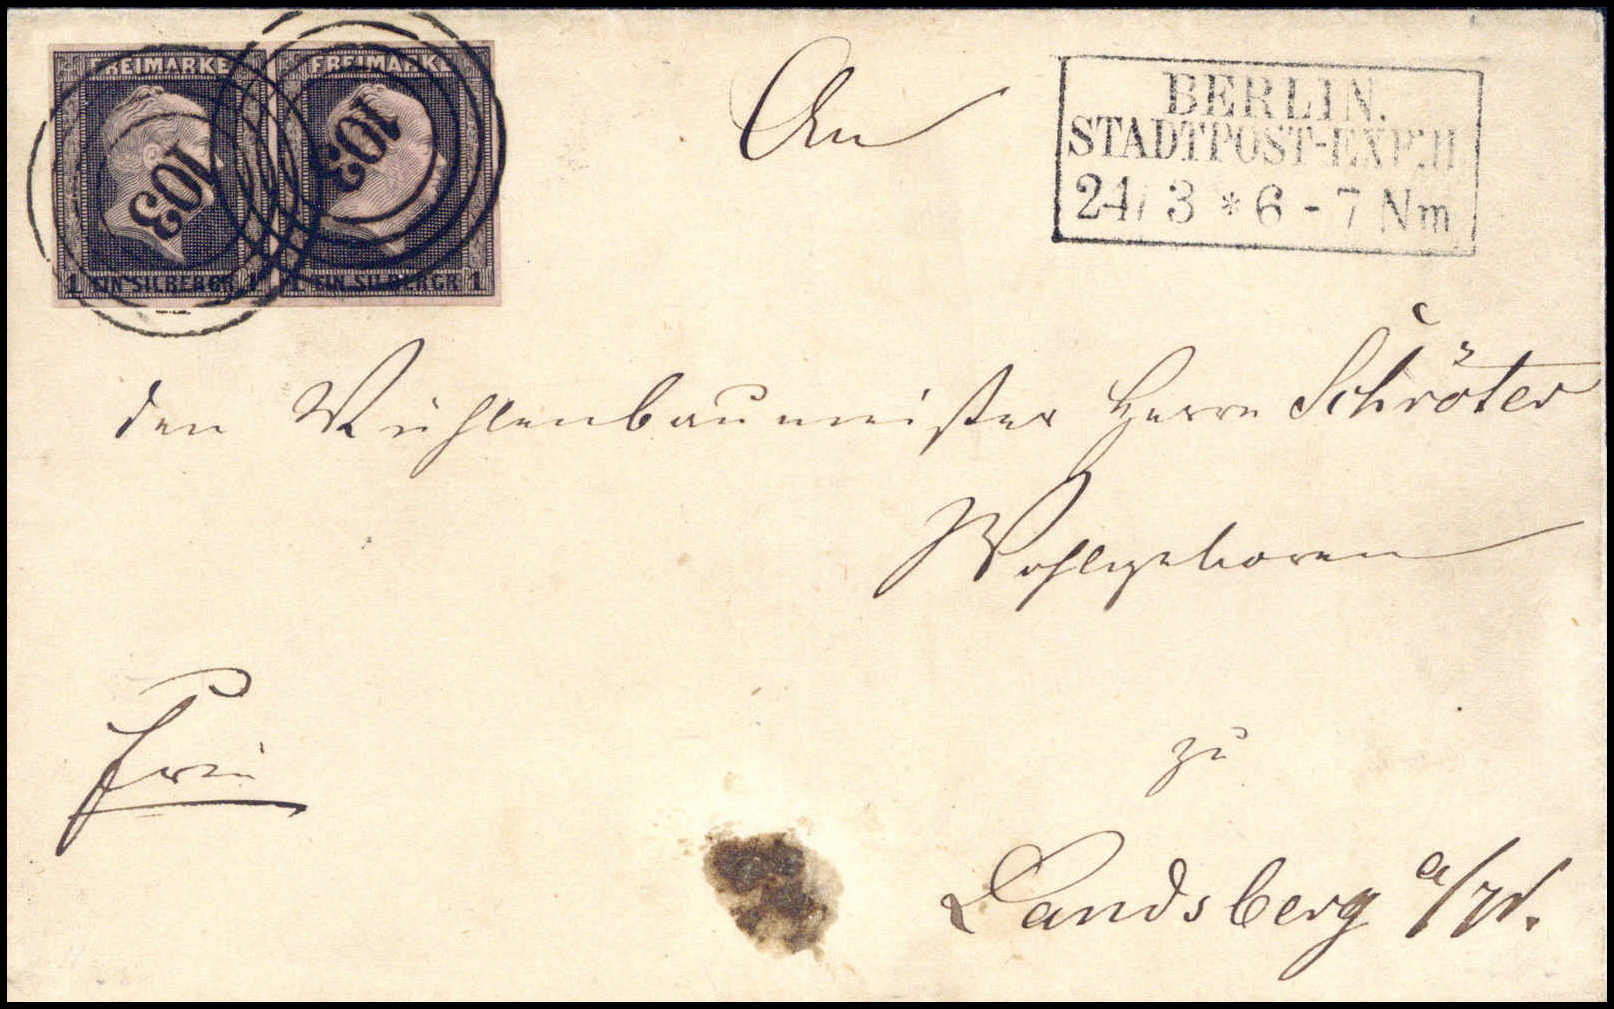 FREIMARKE
103
1 EIN SILBERGR. 1
FREIMARKE
103
1 EIN SILBERGR. 1
BERLIN.
STADTPOST-EXP. II
24/ 3 * 6 - 7 Nm
An
den Mühlenbaumeister Herrn Schröter
Wohlgeboren
Frei
zu
Landsberg a/W.